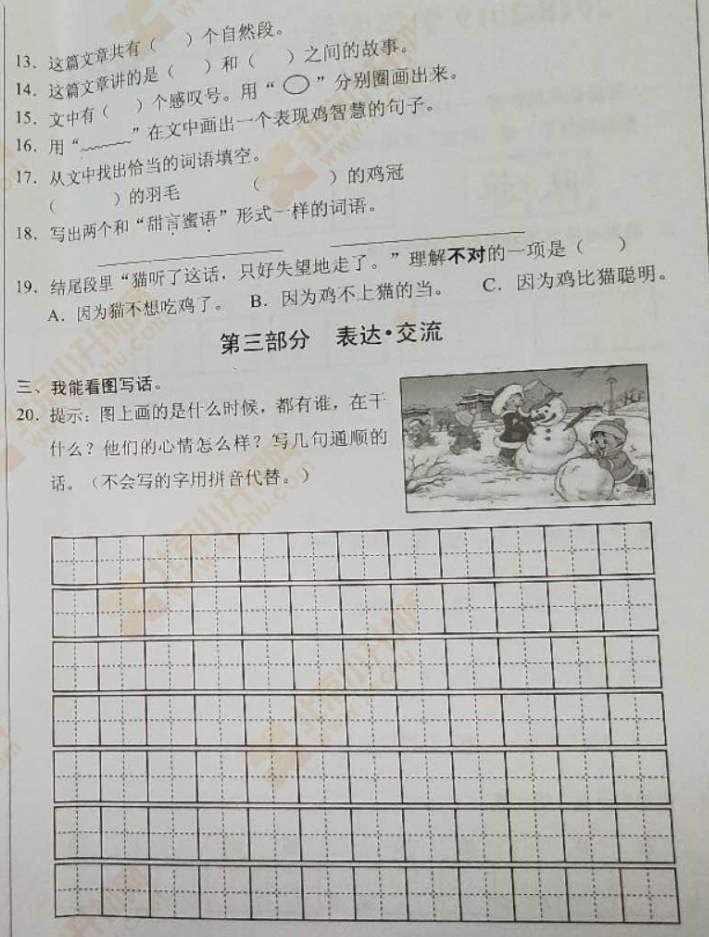 13．这篇文章共有（　　）个自然段。
14．这篇文章讲的是（　　）和（　　）之间的故事。
15．文中有（　　）个感叹号。用“○”分别圈画出来。
16．用“﹏﹏”在文中画出一个表现鸡智慧的句子。
17．从文中找出恰当的词语填空。
（　　　　）的羽毛　　　　（　　　　）的鸡冠
18．写出两个和“甜言蜜语”形式一样的词语。
19．结尾段里“猫听了这话，只好失望地走了。”理解不对的一项是（　　）
A．因为猫不想吃鸡了。　B．因为鸡不上猫的当。　C．因为鸡比猫聪明。
第三部分　表达·交流
三、我能看图写话。
20．提示：图上画的是什么时候，都有谁，在干
什么？他们的心情怎么样？写几句通顺的
话。（不会写的字用拼音代替。）